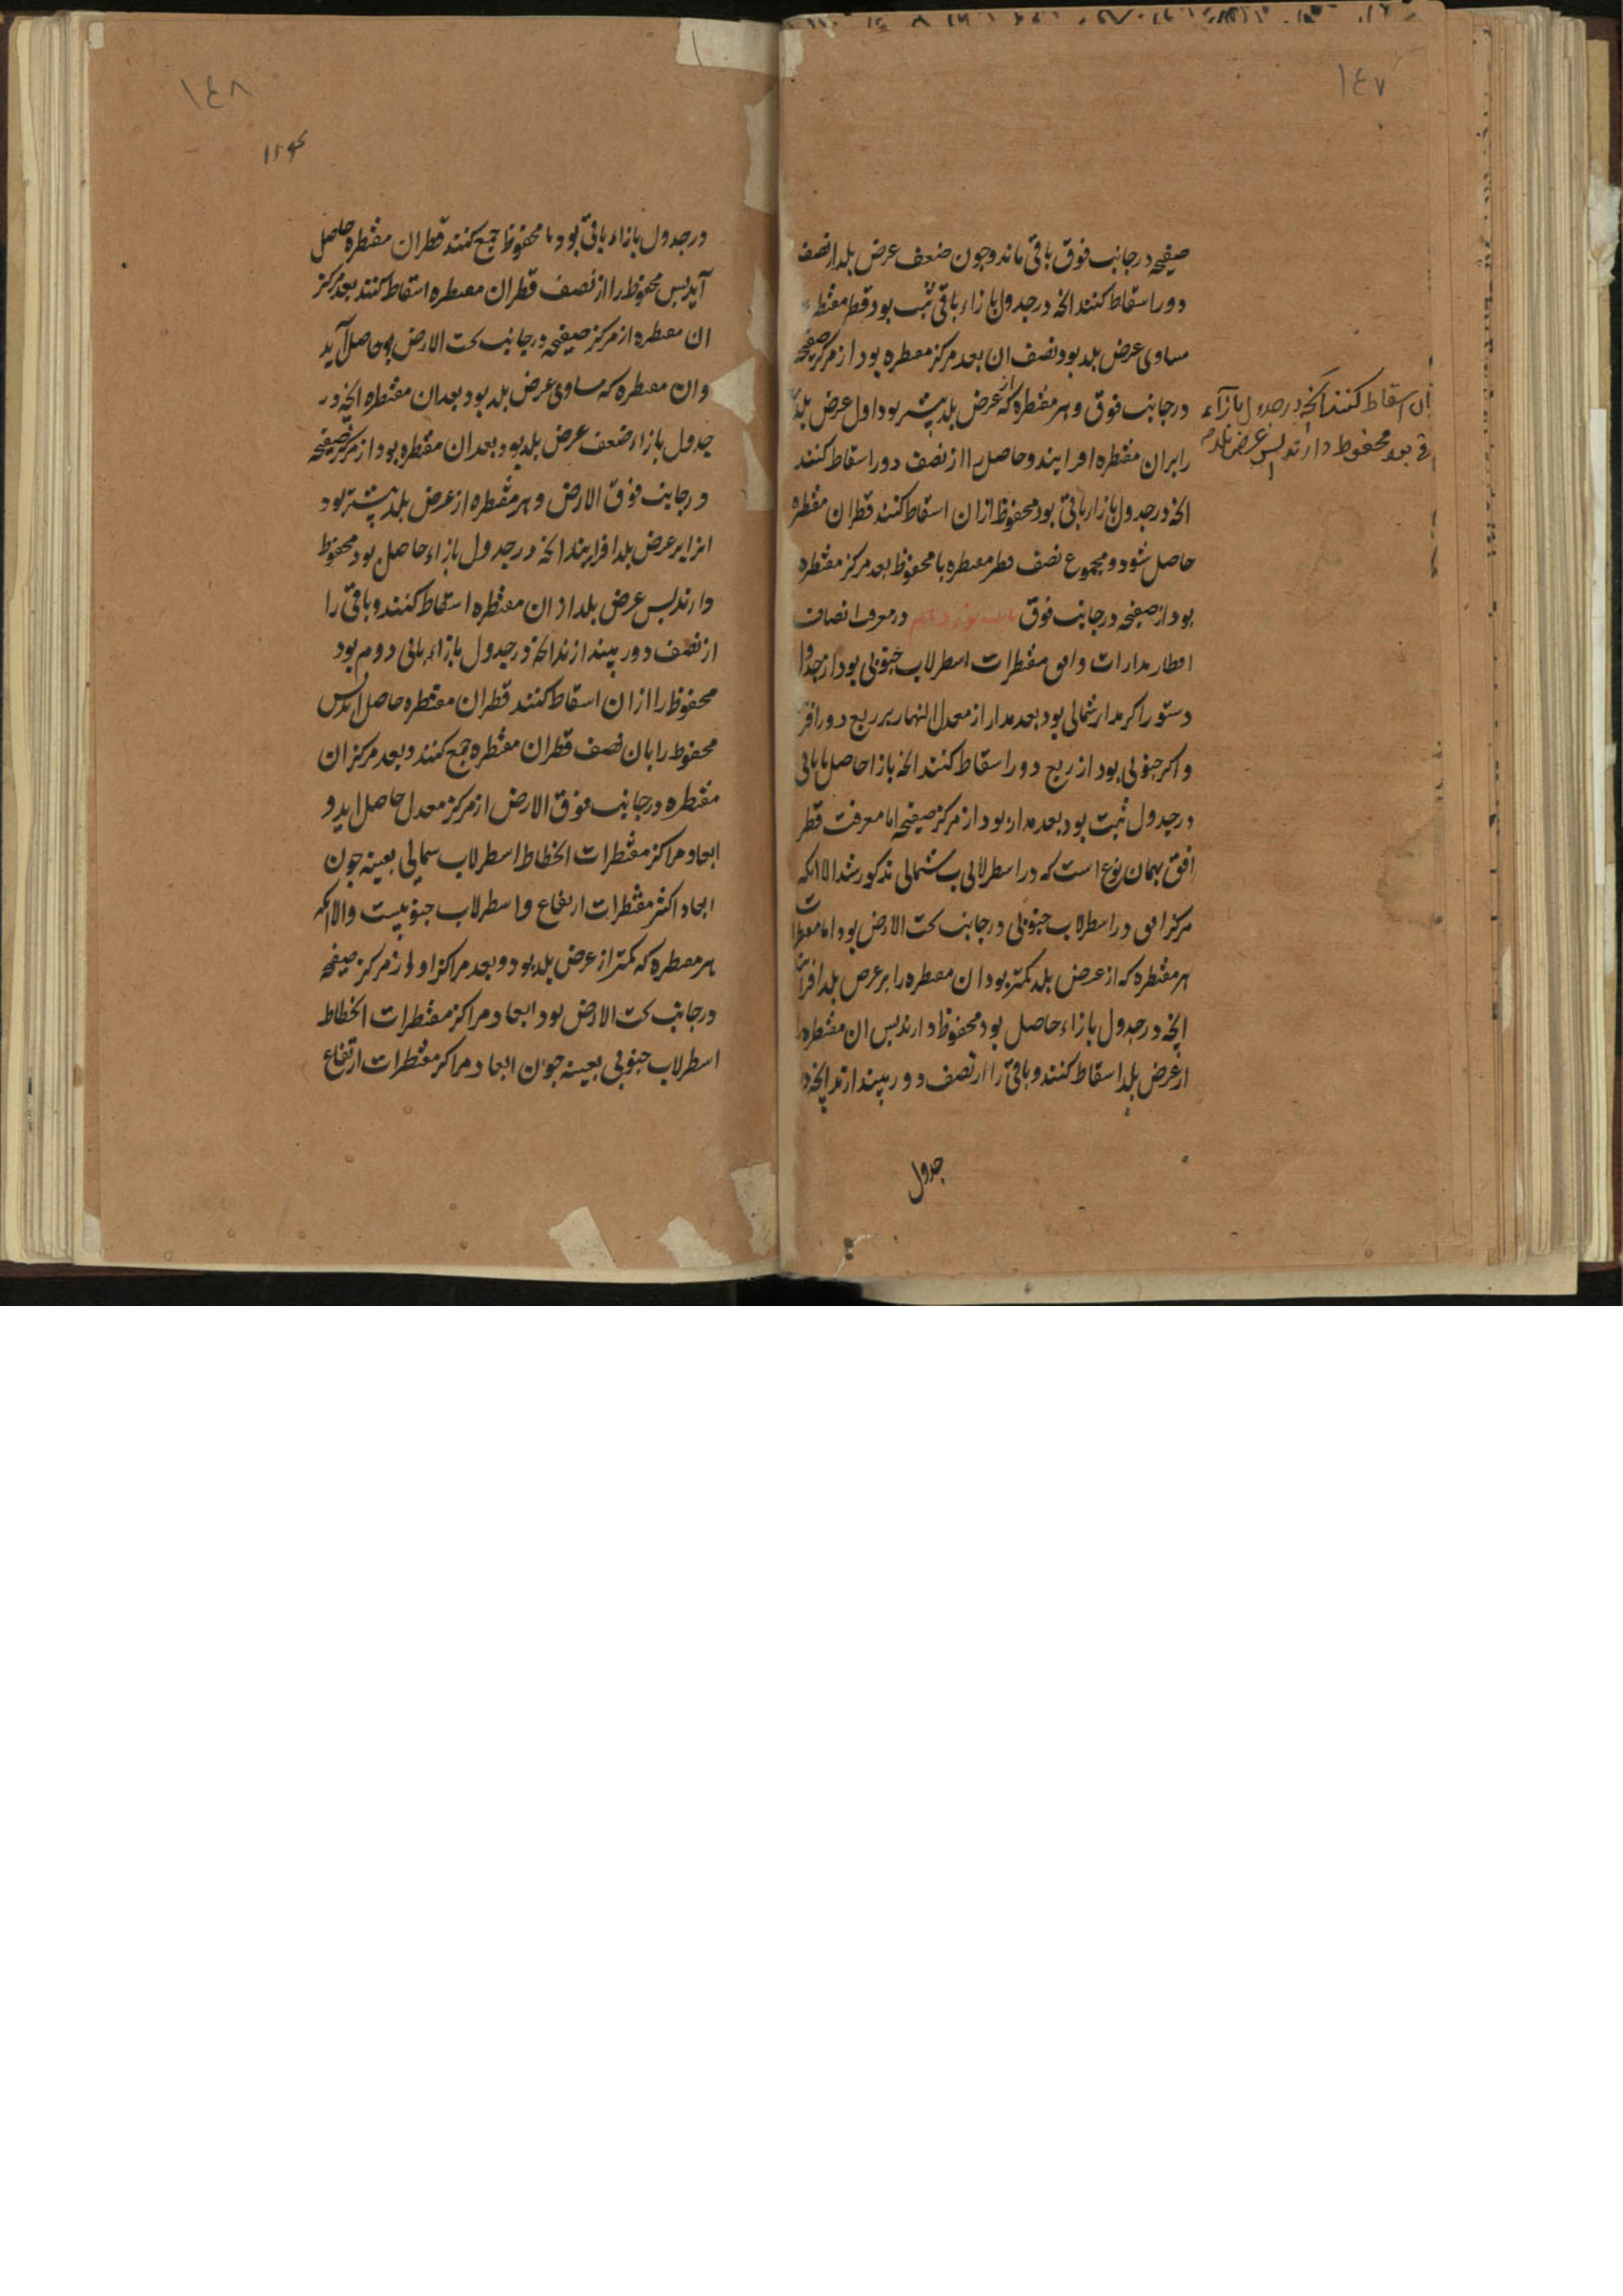 ١٤٧
صفیحه در جانب فوق باقی ماند و چون ضعف عرض بلد از نصف
دور اسقاط کنند انچه در جدول بازاء باقی ثبت بود قطر مقنطره
مساوی عرض بلد بود نصف ان بعد مرکز مقنطره بود از مرکز صفیحه
در جانب فوق و هر مقنطره که از عرض بلد بیشتر بود اول عرض بلد
را بران مقنطره افزایند و حاصل را از نصف دور اسقاط کنند
انچه در جدول بازاء باقی بود محفوظ ازان اسقاط کنند قطر ان مقنطره
حاصل شود و مجموع نصف قطر مقنطره با محفوظ بعد مرکز مقنطره
بود از صفیحه در جانب فوق باب نوزدهم در معرفت انصاف
اقطار مدارات وافق مقنطرات اسطرلاب جنوبی بود از جدول
دستور اکر مدار شمالی بود بعد مدار از معدل النهار بر ربع دور افز
واکر جنوبی بود از ربع دور اسقاط کنند انچه بازا حاصل یا باقی
در جدول ثبت بود بعد مدار بود از مرکز صفیحه اما معرفت قطر
افق بهمان نوع است که در اسطرلابی شمالی مذکور شد الا انکه
مرکز افق در اسطرلاب جنوبی در جانب تحت الارض بود اما مقنطرات
هر مقنطره که از عرض بلد کمتر بود ان مقنطره را بر عرض بلد افزایند
انچه در جدول بازاء حاصل بود محفوظ دارند پس ان مقنطره را
از عرض بلد اسقاط کنند و باقی را از نصف دور بیندازند انچه در
جدول
ان اسقاط کنند انچه در جدول بازآء
قی بود محفوظ دارند پس عرض بلد
١٤٨
در جدول بازاء باقی بود با محفوظ جمع کنند قطر ان مقنطره حاصل
آید پس محفوظ را از نصف قطر ان مقنطره اسقاط کنند بعد مرکز
ان مقنطره از مرکز صفیحه در جانب تحت الارض حاصل آید
وان مقنطره که مساوی عرض بلد بود بعد ان مقنطره انچه در
جدول بازاء ضعف عرض بلد بود بعد ان مقنطره بود از مرکز صفیحه
در جانب فوق الارض و هر مقنطره از عرض بلد بیشتر بود
انرا بر عرض بلد افزایند انچه در جدول بازاء حاصل بود محفوظ
دارند پس عرض بلد از ان مقنطره اسقاط کنند و باقی را
از نصف دور بیندازند انچه در جدول بازاء باقی دوم بود
محفوظ را ازان اسقاط کنند قطر ان مقنطره حاصل اید پس
محفوظ را بان نصف قطر ان مقنطره جمع کنند و بعد مرکز ان
مقنطره در جانب فوق الارض از مرکز معدل حاصل اید و
ابعاد مراکز مقنطرات انحطاط اسطرلاب شمالی بعینه چون
ابعاد اکثر مقنطرات ارتفاع و اسطرلاب جنوبیست والا انکه
هر مقنطره که کمتر از عرض بلد بود و بعد مراکز او از مرکز صفیحه
در جانب تحت الارض بود ابعاد مراکز مقنطرات انحطاط
اسطرلاب جنوبی بعینه چون ابعاد مراکز مقنطرات ارتفاع